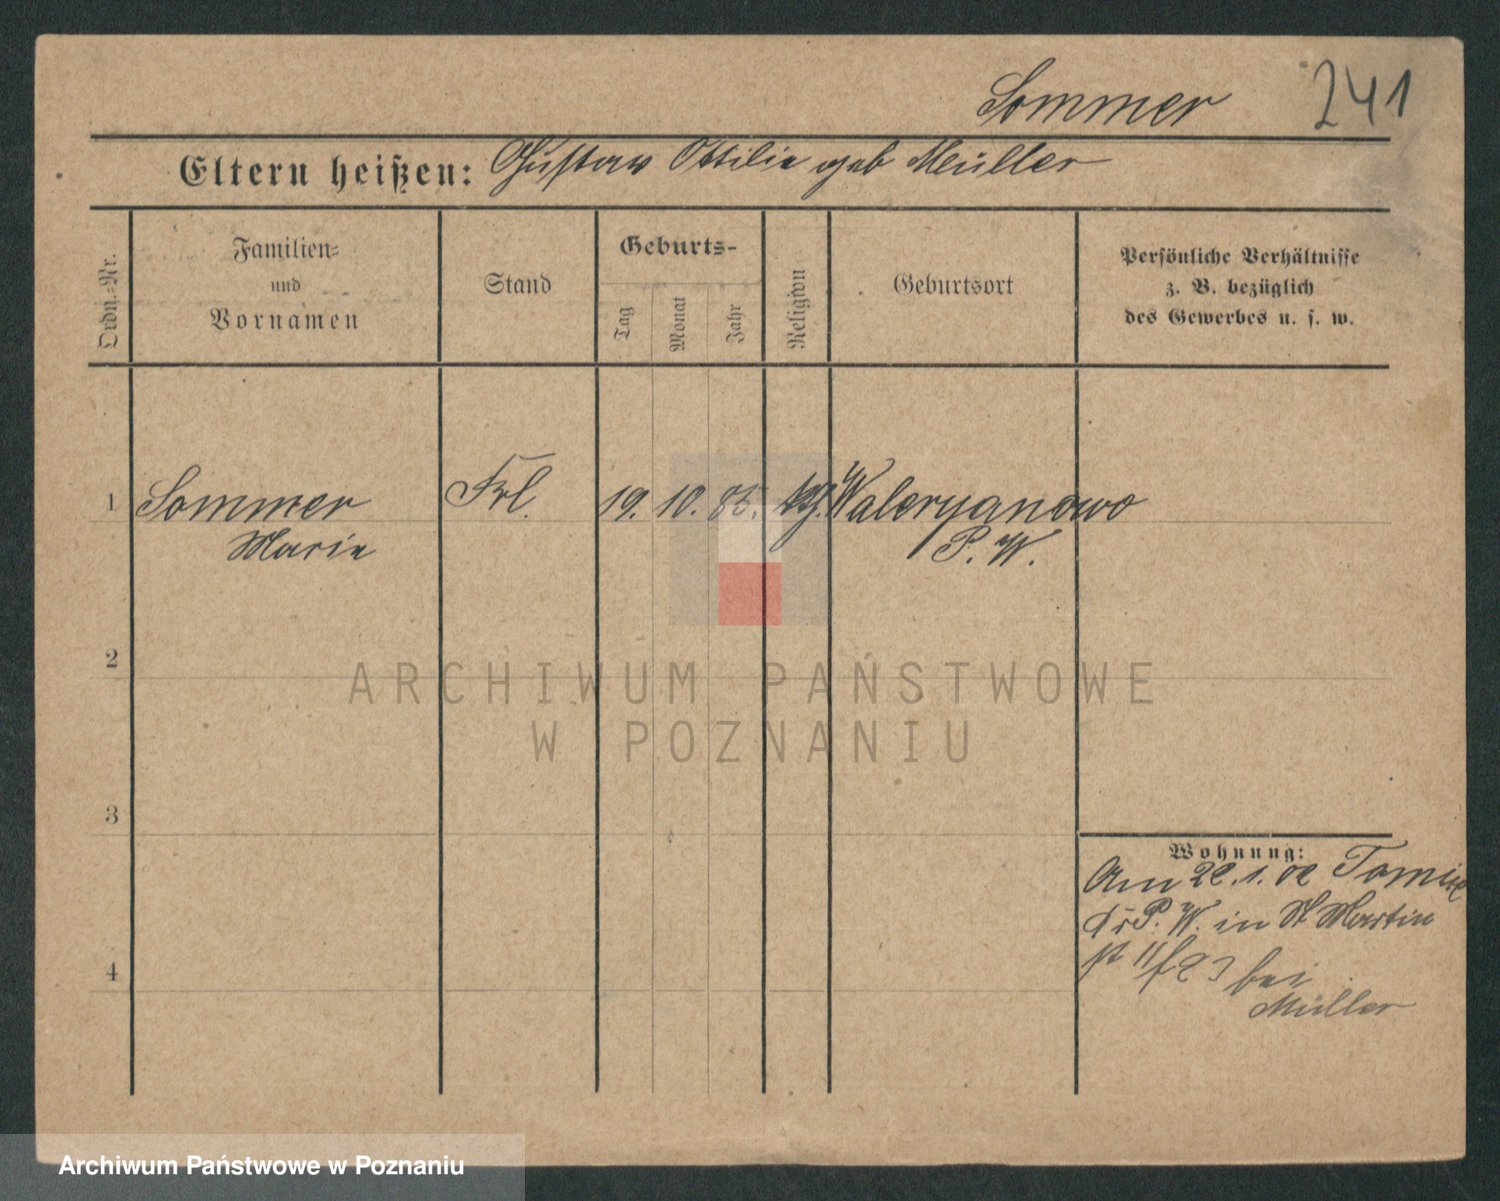 Sommer 241
Eltern heißen: Gustav Ottilie geb Müller
Ordn.-Nr.
Familien-
und
Vornamen
Stand
Geburts-
Tag
Monat
Jahr
Religion
Geburtsort
Persönliche Verhältnisse
z. B. bezüglich
des Gewerbes u. s. w.
1 Sommer Frl. 19. 10. 85. Waleryanowo
Marie P. W.
2
3
4
Wohnung:
Am 22.1.02
P. W. in St Martin
bei
Müller
ARCHIWUM PAŃSTWOWE
W POZNANIU
Archiwum Państwowe w Poznaniu